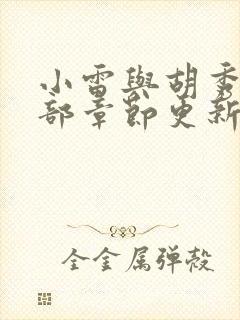 小雷與胡秀
部章節更新
全金属弹殻